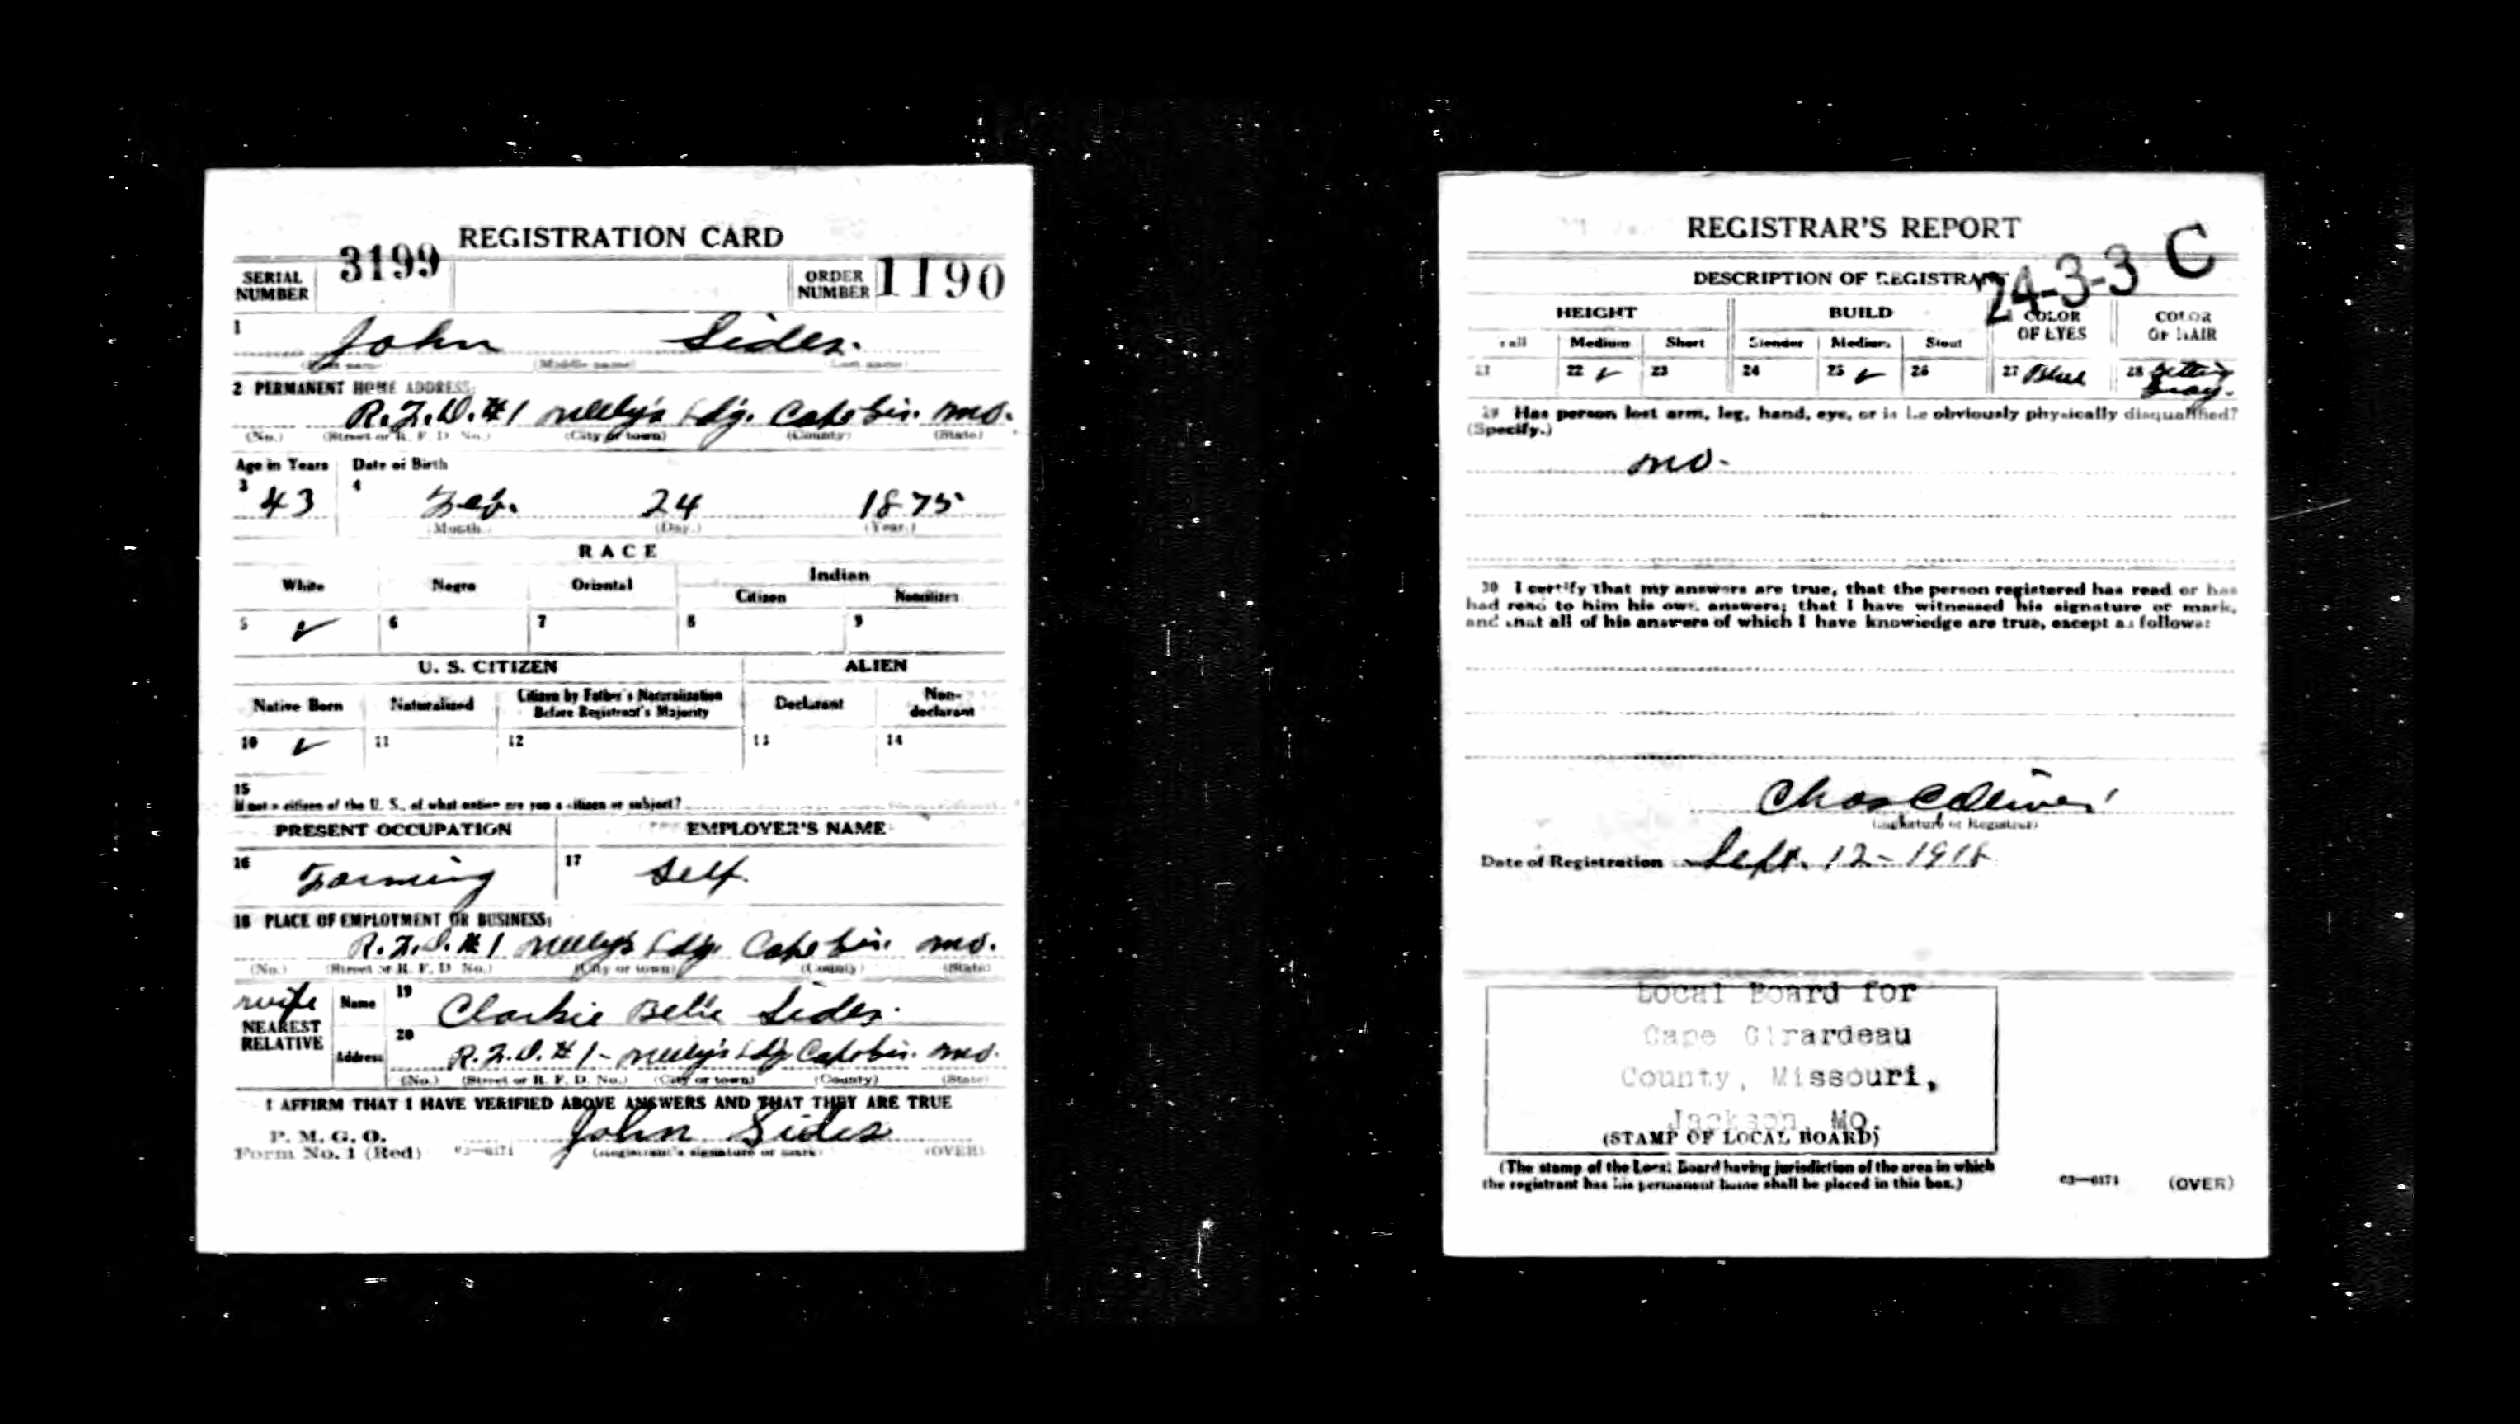 REGISTRATION CARD
SERIAL NUMBER 3199 ORDER NUMBER 1190
1 John Sides.
(First name) (Middle name) (Last name)
2 PERMANENT HOME ADDRESS:
R.F.D. #1 Neely's Ldg. Cape Gir. Mo.
(No.) (Street or R. F. D. No.) (City or town) (County) (State)
Age in Years Date of Birth
3 43 4 Feb. 24 1875
(Month.) (Day.) (Year.)
RACE
White Negro Oriental Indian
Citizen Noncitizen
5 ✓ 6 7 8 9
U. S. CITIZEN ALIEN
Native Born Naturalized Citizen by Father's Naturalization Before Registrant's Majority Declarant Non-declarant
10 ✓ 11 12 13 14
15
If not a citizen of the U. S., of what nation are you a citizen or subject?
PRESENT OCCUPATION EMPLOYER'S NAME
16 Farming 17 Self
18 PLACE OF EMPLOYMENT OR BUSINESS:
R.F.D. #1 Neely's Ldg. Cape Gir. Mo.
(No.) (Street or R. F. D. No.) (City or town) (County) (State)
wife Name 19 Clarkie Belle Sides.
NEAREST RELATIVE
Address 20 R.F.D. #1- Neely's Ldg Cape Gir. Mo.
(No.) (Street or R. F. D. No.) (City or town) (County) (State)
I AFFIRM THAT I HAVE VERIFIED ABOVE ANSWERS AND THAT THEY ARE TRUE
P. M. G. O.
Form No. 1 (Red) 03—6171 John Sides
(Registrant's signature or mark) (OVER)
REGISTRAR'S REPORT
24-3-3 C
DESCRIPTION OF REGISTRANT
HEIGHT BUILD COLOR OF EYES COLOR OF HAIR
Tall Medium Short Slender Medium Stout
21 22 ✓ 23 24 25 ✓ 26 27 Blue 28 Getting Gray.
29 Has person lost arm, leg, hand, eye, or is he obviously physically disqualified?
(Specify.)
No.
30 I certify that my answers are true, that the person registered has read or has
had read to him his own answers; that I have witnessed his signature or mark,
and that all of his answers of which I have knowledge are true, except as follows:
Chas
(Signature of Registrar)
Date of Registration Sept. 12 - 1918
Local Board for
Cape Girardeau
County, Missouri,
Jackson, MO.
(STAMP OF LOCAL BOARD)
(The stamp of the Local Board having jurisdiction of the area in which
the registrant has his permanent home shall be placed in this box.)
03—6171 (OVER)